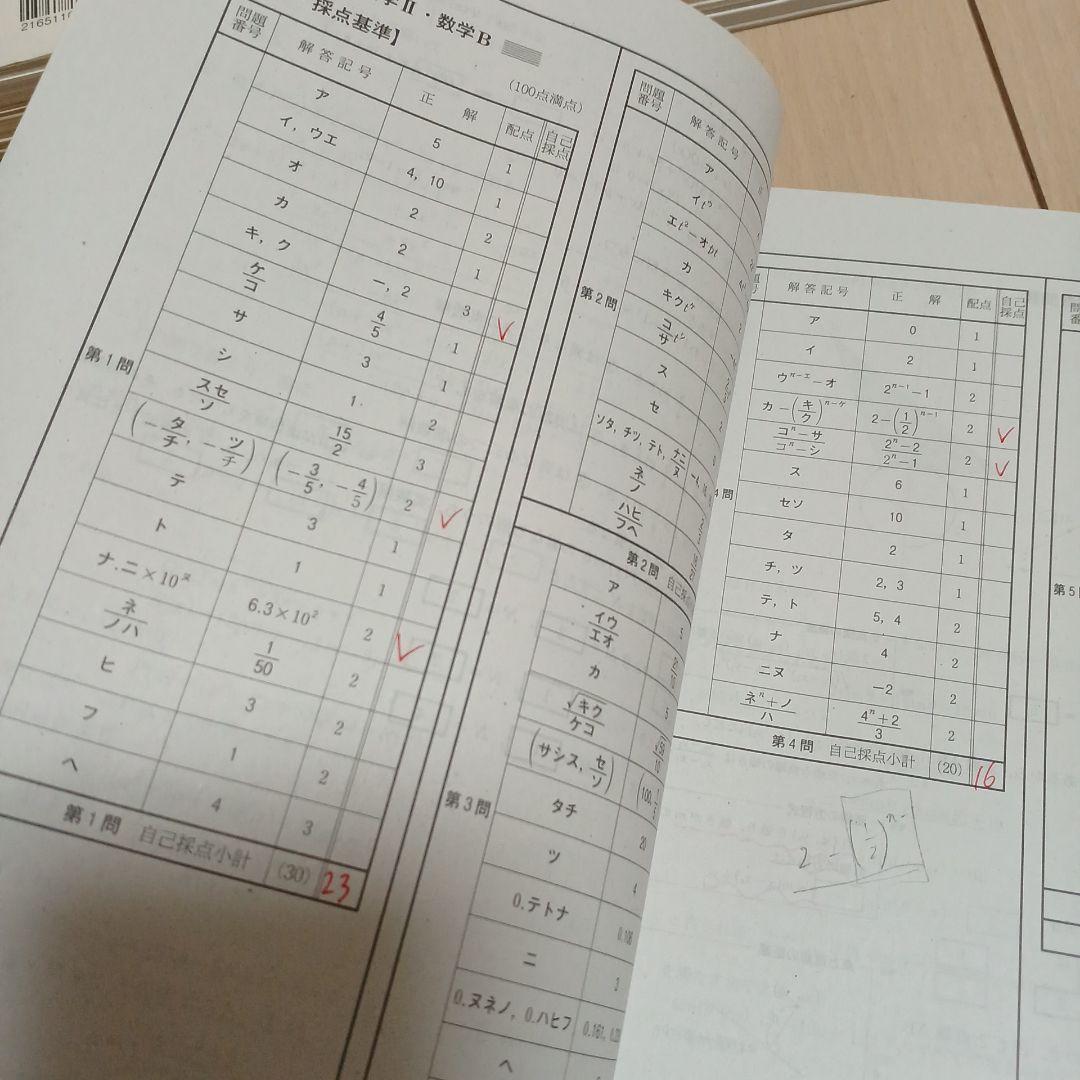 2165110
学Ⅱ・数学B
採点基準】
(100点満点)
問題番号 解答記号 正解 配点 自己採点
第1問
ア 5 1
イ, ウエ 4, 10 1
オ 2 2
カ 2 1
キ, ク −, 2 3
ケ/コ 4/5 1 ✓
サ 3 1
シ 1 2
スセ/ソ 15/2 3
(−タ/チ, −ツ/チ) (−3/5, −4/5) 2 ✓
テ 3 1
ト 1 1
ナ.ニ×10^ヌ 6.3×10² 2 ✓
ネ/ノハ 1/50 2
ヒ 3 2
フ 1 2
ヘ 4 3
第1問 自己採点小計 (30) 23
問題番号 解答記号
第2問
ア
イt²
エt²−オbt
カ
キクt²
コ/サ t²
ス
セ
ソタ, チツ, テト, ナニ/ヌ
ネ/ノ
ハヒ/フヘ
第2問 自己採
第3問
ア
イウ/エオ
カ 5
√キク/ケコ
(サシス, セ/ソ) (100,
タチ 20
ツ 4
0.テトナ
ニ
0.ヌネノ, 0.ハヒフ 0.161,
ヘ
解答記号 正解 配点 自己採点
4問
ア 0 1
イ 2 1
ウ^(n−エ)−オ 2^(n−1)−1 2
カ−(キ/ク)^(n−ケ) 2−(1/2)^(n−1) 2 ✓
(コ^n−サ)/(コ^n−シ) (2^n−2)/(2^n−1) 2 ✓
ス 6 1
セソ 10 1
タ 2 1
チ, ツ 2, 3 1
テ, ト 5, 4 2
ナ 4 2
ニヌ −2 2
(ネ^n+ノ)/ハ (4^n+2)/3 2
第4問 自己採点小計 (20) 16
2−(1/2)^n−
第5